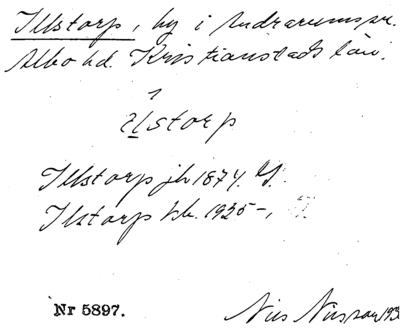 Illstorp, by i Andrarums sn.
Albo hd. Kristianstads län.
Illstorp jb 1874.
Ilstorp kb. 1925-,
Nr 5897.
Nils Nilsson 193